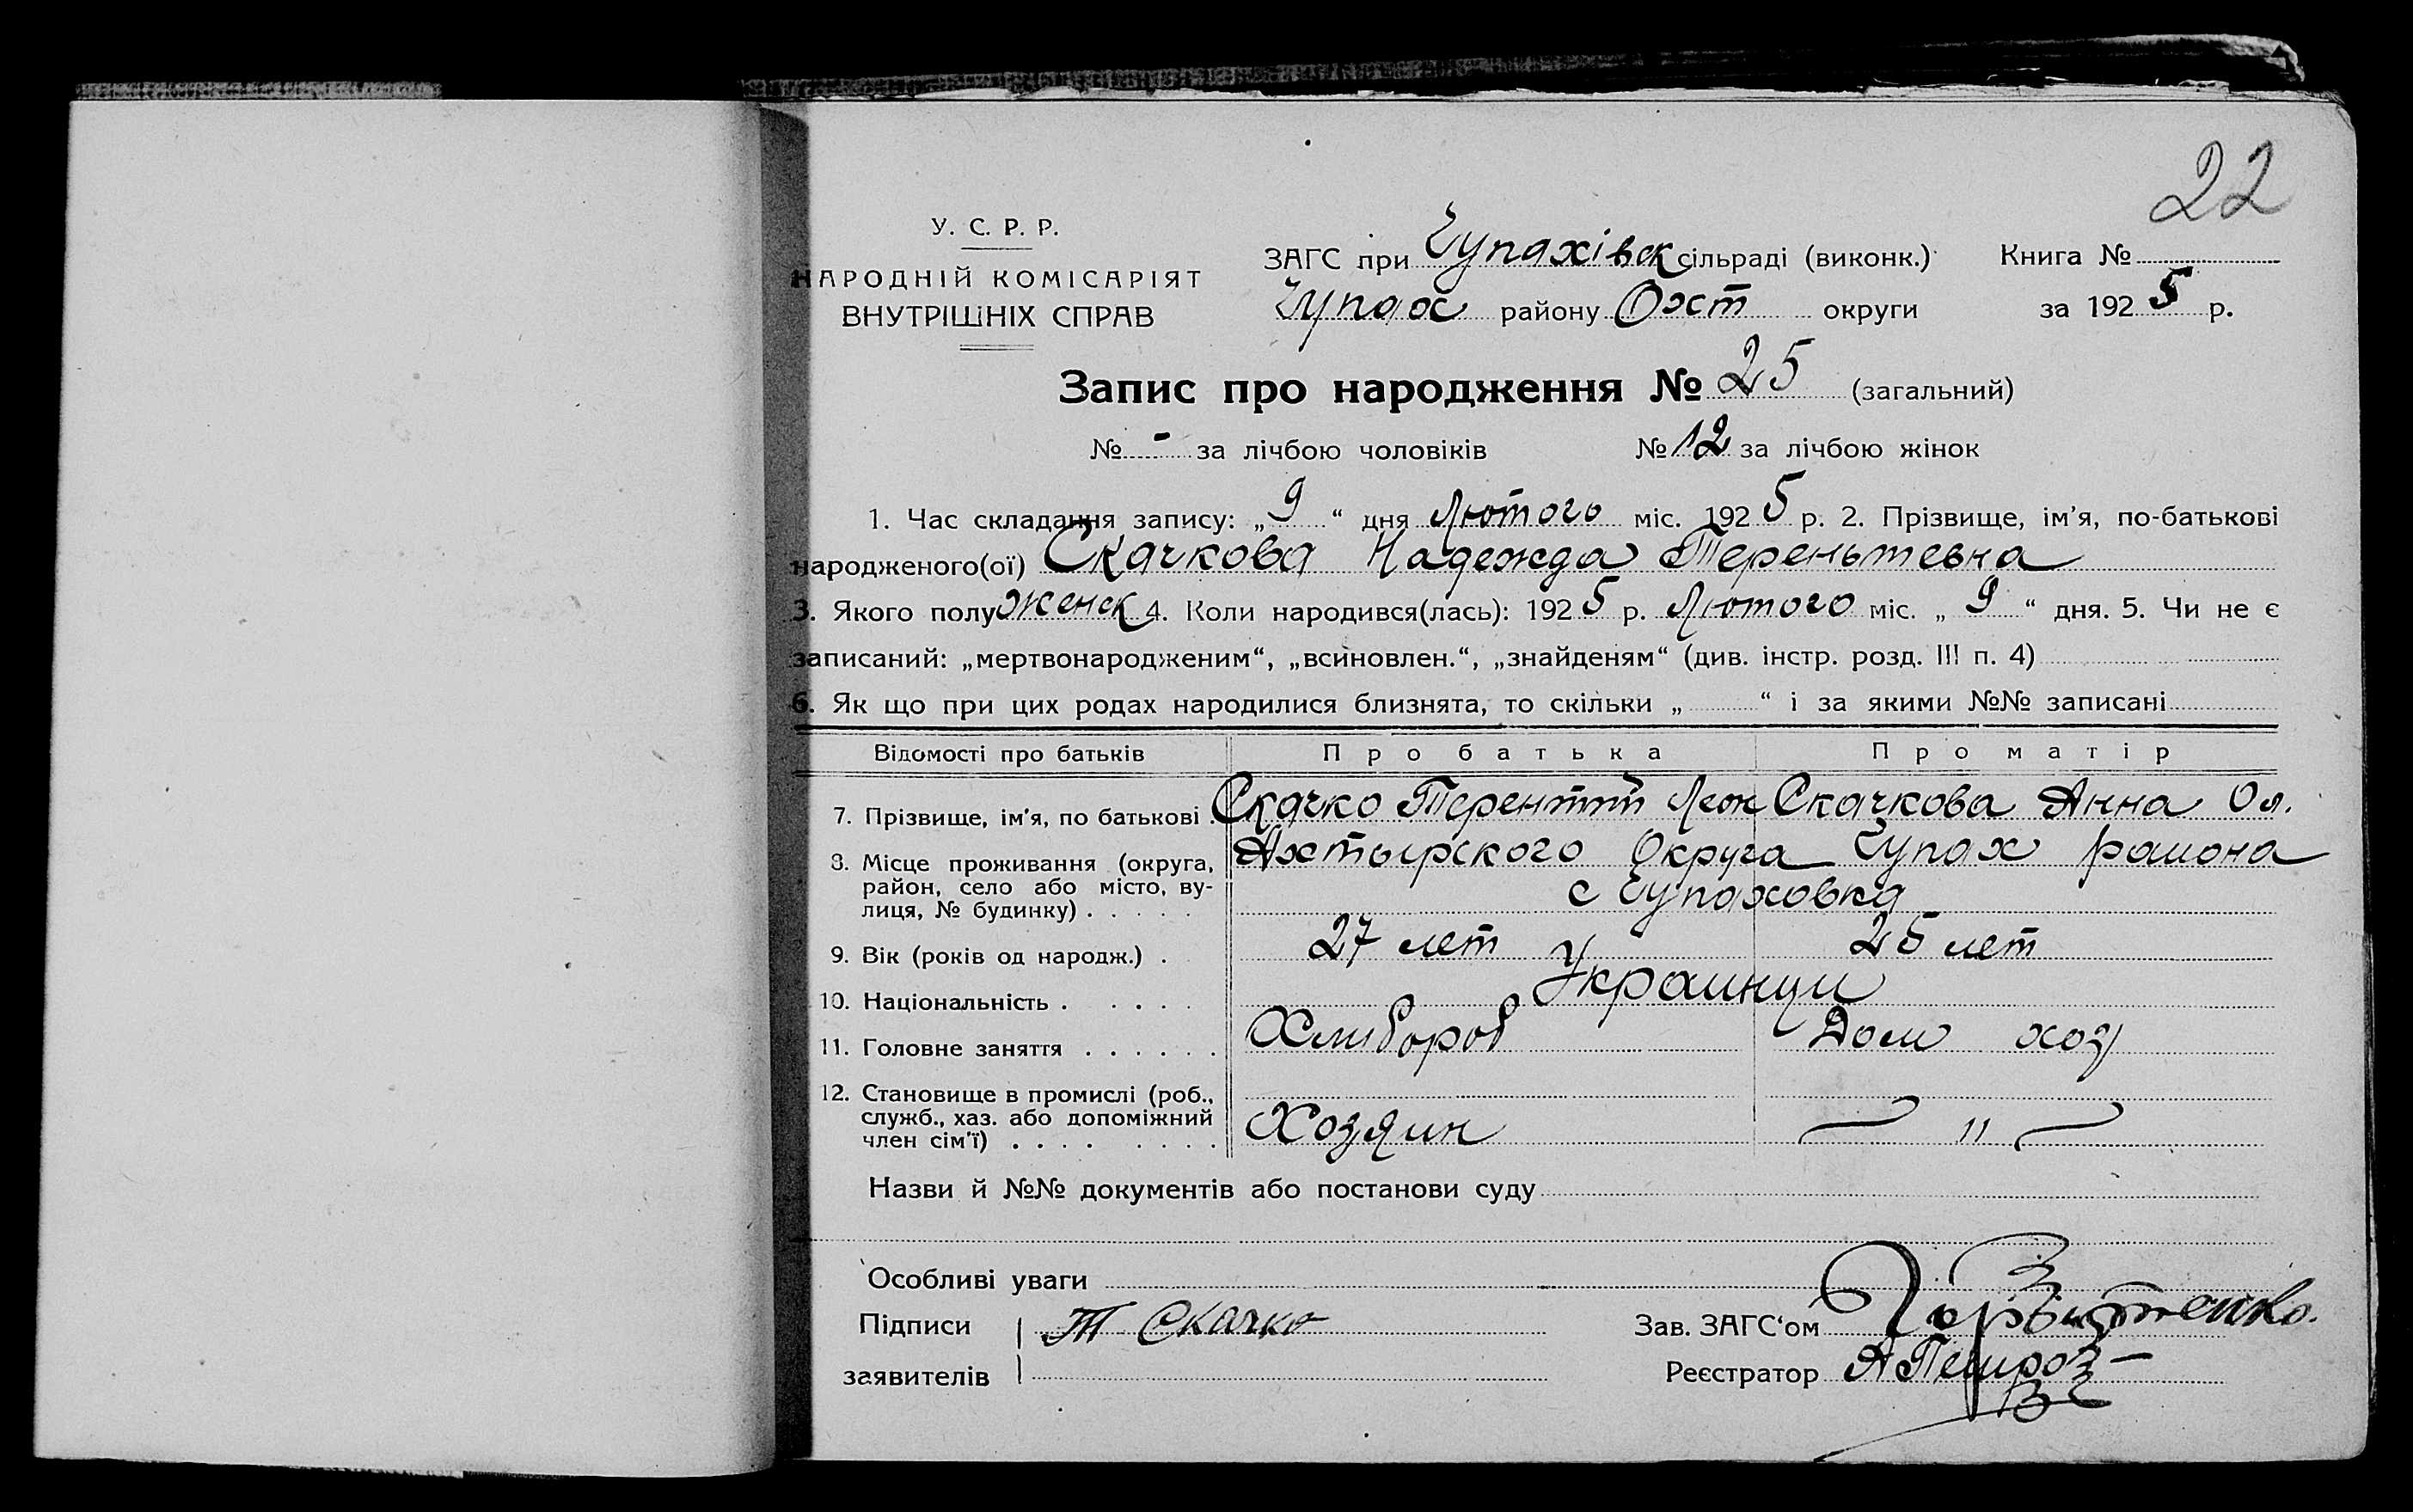 22
У. С. Р. Р.
НАРОДНІЙ КОМІСАРІЯТ
ВНУТРІШНІХ СПРАВ
ЗАГС при Чупахівск сільраді (виконк.) Книга №
Чупах району Охт округи за 1925 р.
Запис про народження № 25 (загальний)
№ - за лічбою чоловіків № 12 за лічбою жінок
1. Час складання запису: „9“ дня Лютого міс. 1925 р. 2. Прізвище, ім'я, по-батькові
народженого(ої) Скачкова Надежда Тереньтевна
3. Якого полу женск 4. Коли народився(лась): 1925 р. Лютого міс. „9“ дня. 5. Чи не є
записаний: „мертвонародженим“, „всиновлен.“, „знайденям“ (див. інстр. розд. III п. 4)
6. Як що при цих родах народилися близнята, то скільки „ “ і за якими №№ записані
Відомості про батьків Про батька Про матір
7. Прізвище, ім'я, по батькові . Скачко Терентий Скачкова Анна Ол.
8. Місце проживання (округа, район, село або місто, вулиця, № будинку) . . . . . Ахтырского Округа Чупах раиона
с Чупаховка
9. Вік (років од народж.) . 27 лет 25 лет
10. Національність . . . . . Украинци
11. Головне заняття . . . . . . Хлибороб Дом хоз
12. Становище в промислі (роб., служб., хаз. або допоміжний член сім'ї) . . . . . . . . Хозяин — " —
Назви й №№ документів або постанови суду
Особливі уваги
Підписи Т Скачко Зав. ЗАГС'ом
заявителів Реєстратор